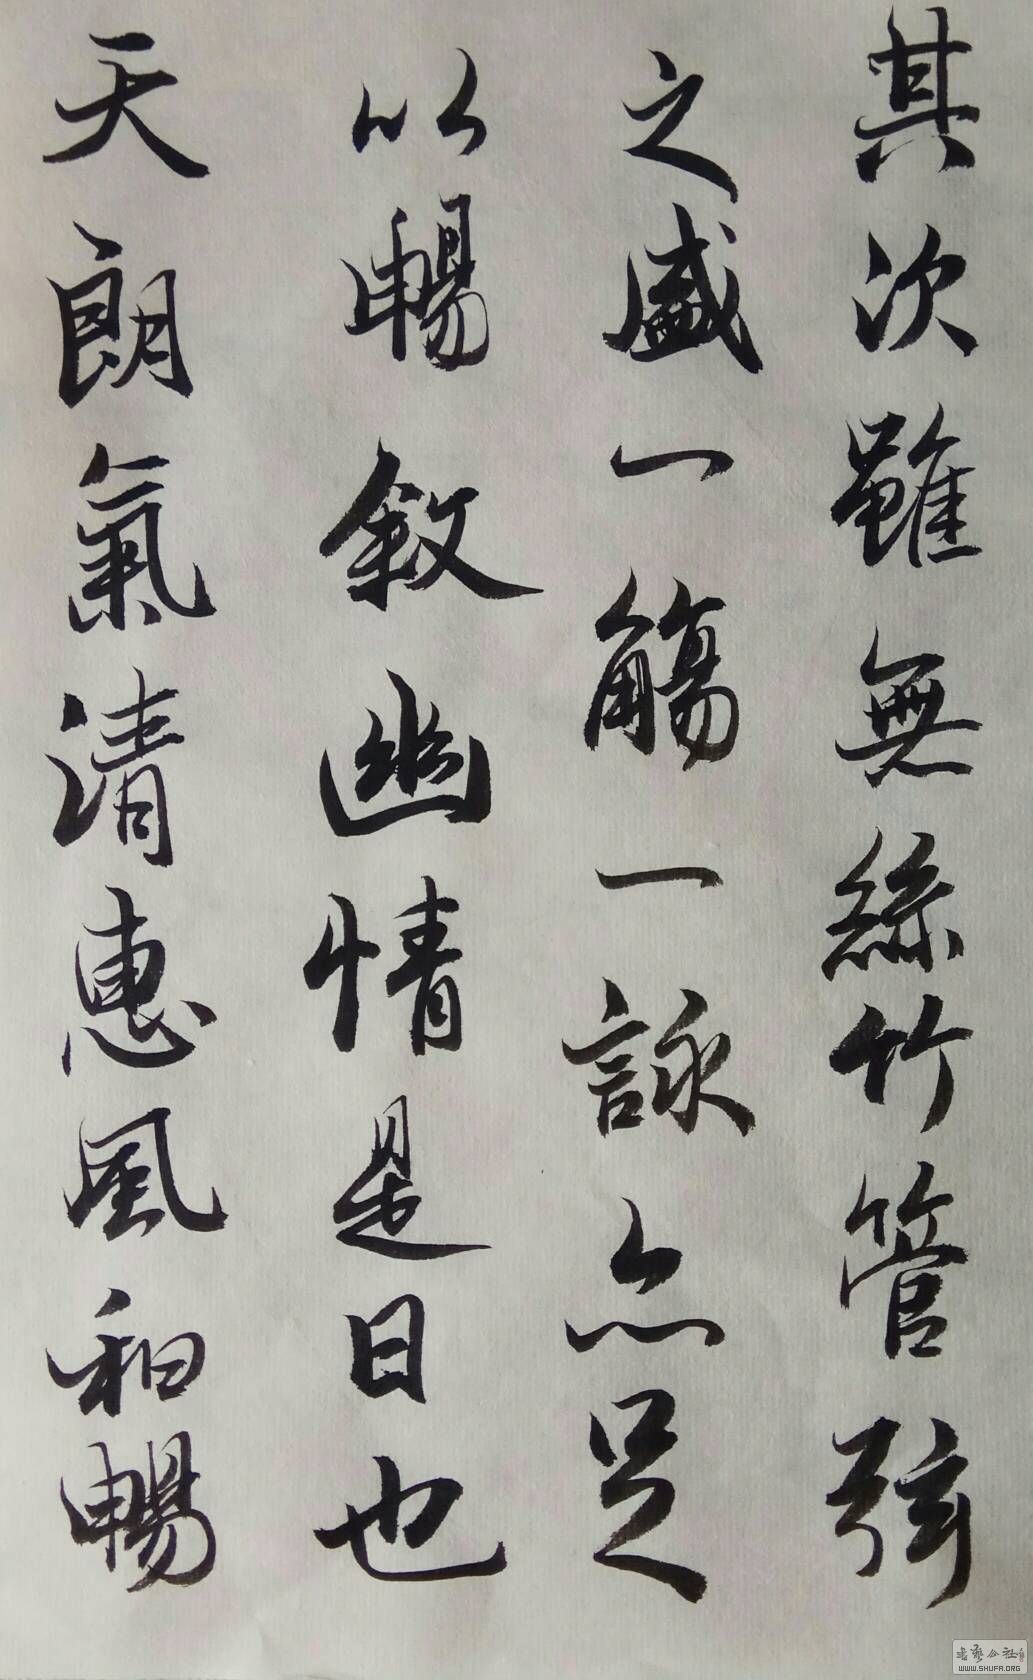 其次雖無絲竹管弦
之盛一觴一詠亦足
以暢敘幽情是日也
天朗氣清惠風和暢
WWW.SHUFA.ORG